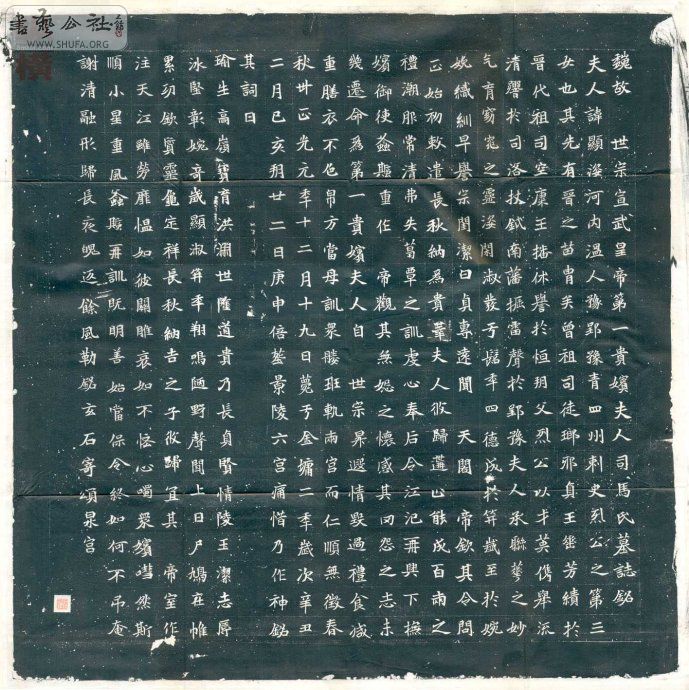 書藝公社
WWW.SHUFA.ORG
魏故 世宗宣武皇帝第一貴嬪夫人司馬氏墓誌銘
夫人諱顯姿河內溫人豫郢豫青四州刺史烈公之第三
女也其先有晉之苗胄矣曾祖司徒瑯邪貞王垂芳績於
晉代祖司空康王播休譽於恒朔父烈公以才英儁舉流
清響於司洛杖鉞南藩振雷聲於郢豫夫人承聯華之妙
气育窈窕之靈姿閑淑發于髫年四德成於笄歲至於婉
娩織紃早譽宗閨潔白貞專遠聞 天閣 帝欽其令問
正始初敕遣長秋納為貴華夫人攸歸遘止能成百兩之
禮潮服常清弗失葛覃之訓虔心奉后令江汜再興下撫
嬪御使螽斯重作 帝觀其無嫉之懷感其罔怨之志未
幾遷命為第一貴嬪夫人自 世宗昇遐情毀過禮食減
重膳衣不色帛方當母訓眾媵班軌兩宮而仁順無徵春
秋卅正光元年十二月十九日薨于金墉二年歲次辛丑
二月己亥朔廿二日庚申倍塟景陵六宮痛惜乃作神銘
其詞曰
瑜生高嶺寶育洪淵世隆道貴乃長貞賢情陵玉潔志厲
冰堅彰婉奇歲顯淑笄年翔鳴陋野聲聞上日尸鳩在帷
累功欽質靈龜定祥長秋納吉之子攸歸宜其 帝室作
注天江雖勞靡慍如彼關雎哀如不怪心噣眾嬪嘒然斯
順小星重風螽斯再訓既明善始當保令終如何不弔奄
謝清融形歸長夜魄返餘風勒銘玄石寄頌泉宮